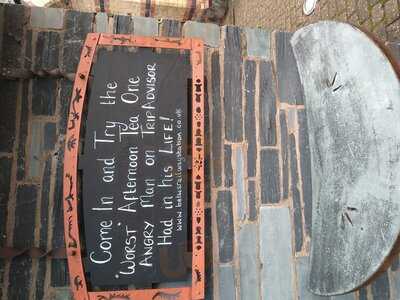 Come In and Try the
"WORST" Afternoon Tea One
ANGRY MAN on TRIPADVISOR
Had in his LIFE!